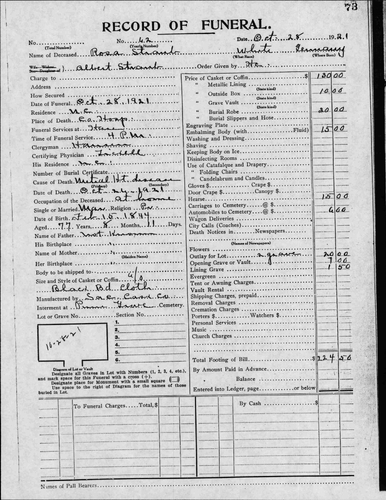 73
RECORD OF FUNERAL.
No. 42 Date, Oct. 28 1921
(Total Number) (Yearly Number)
Name of Deceased, Rosa Straub White Germany
(What Race) (Where Born)
Albert Straub Order Given by
Charge to
Address
How Secured
Date of Funeral, Oct. 28, 1921
Residence
Place of Death, Co. Hosp.
Funeral Services at
Time of Funeral Service, 4 P.M.
Clergyman
Certifying Physician
His Residence,
Number of Burial Certificate
Cause of Death,
Date of Death, Oct. 26, 1921
Occupation of the Deceased, at home
Single or Married, Religion,
Date of Birth, Feb. 15, 1844
Aged, 77 Years, 8 Months, 11 Days.
Name of Father, Not Known
His Birthplace
Name of Mother,
(Maiden Name)
Her Birthplace
Body to be shipped to
Size and Style of Casket or Coffin, 6/0
Black Bd. Cloth
Manufactured by
Interment at Pine Grove Cemetery.
Lot or Grave No. Section No.
1.
2.
3.
4.
5.
6.
10-28-21
Diagram of Lot or Vault
Designate all Graves in Lot with Numbers (1, 2, 3, 4, etc.),
and mark space for this Funeral with a cross (+).
Designate place for Monument with a small square
Use space to the right of Diagram for the names of those
buried in Lot.
Price of Casket or Coffin $ 130 00
" Metallic Lining
(State kind)
" Outside Box 10 00
(State kind)
" Grave Vault
" Burial Robe 20 00
(State kind)
" Burial Slippers and Hose
Engraving Plate
Embalming Body (with Fluid) 15 00
Washing and Dressing
Shaving
Keeping Body on Ice
Disinfecting Rooms
Use of Catafalque and Drapery
" Folding Chairs
" Candelabrum and Candles
Gloves $ Crape $
Door Crape $
Hearse 15 00
Carriages to Cemetery @ $
Automobiles to Cemetery @ $ 6 00
Wagon Deliveries
City Calls (Coaches)
Death Notices in Newspapers
(Names of Newspapers)
Flowers
Outlay for Lot 20 00
Opening Grave or Vault 7 00
Lining Grave 1 50
Evergreen
Tent or Awning Charges
Vault Rental
Shipping Charges, prepaid
Removal Charges
Cremation Charges
Porters @ $ Watchers @ $
Personal Services
Music
Church Charges
Total Footing of Bill $ 224 50
By Amount Paid in Advance
Balance
Entered into Ledger, page or below.
To Funeral Charges, Total $ By Cash
Names of Pall Bearers